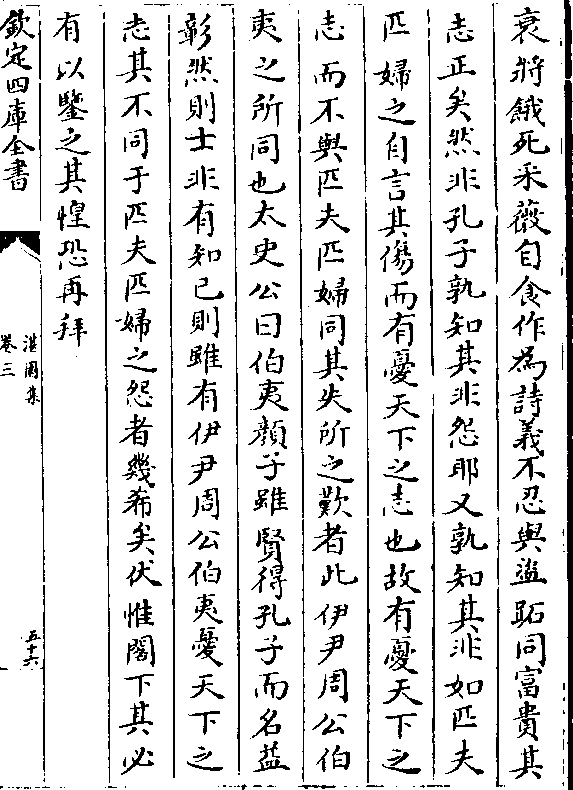 衰將餓死采薇自食作為詩義不忍與盜跖同富貴其
志正矣然非孔子孰知其非怨耶又孰知其非如匹夫
匹婦之自言其傷而有憂天下之志也故有憂天下之
志而不與匹夫匹婦同其失所之歎者此伊尹周公伯
夷之所同也太史公曰伯夷顔子雖賢得孔子而名益
彰然則士非有知已則雖有伊尹周公伯夷憂天下之
志其不同于匹夫匹婦之怨者幾希矣伏惟閣下其必
有以鑒之其惶恐再拜
欽定四庫全書
湛園集
卷三
五十六